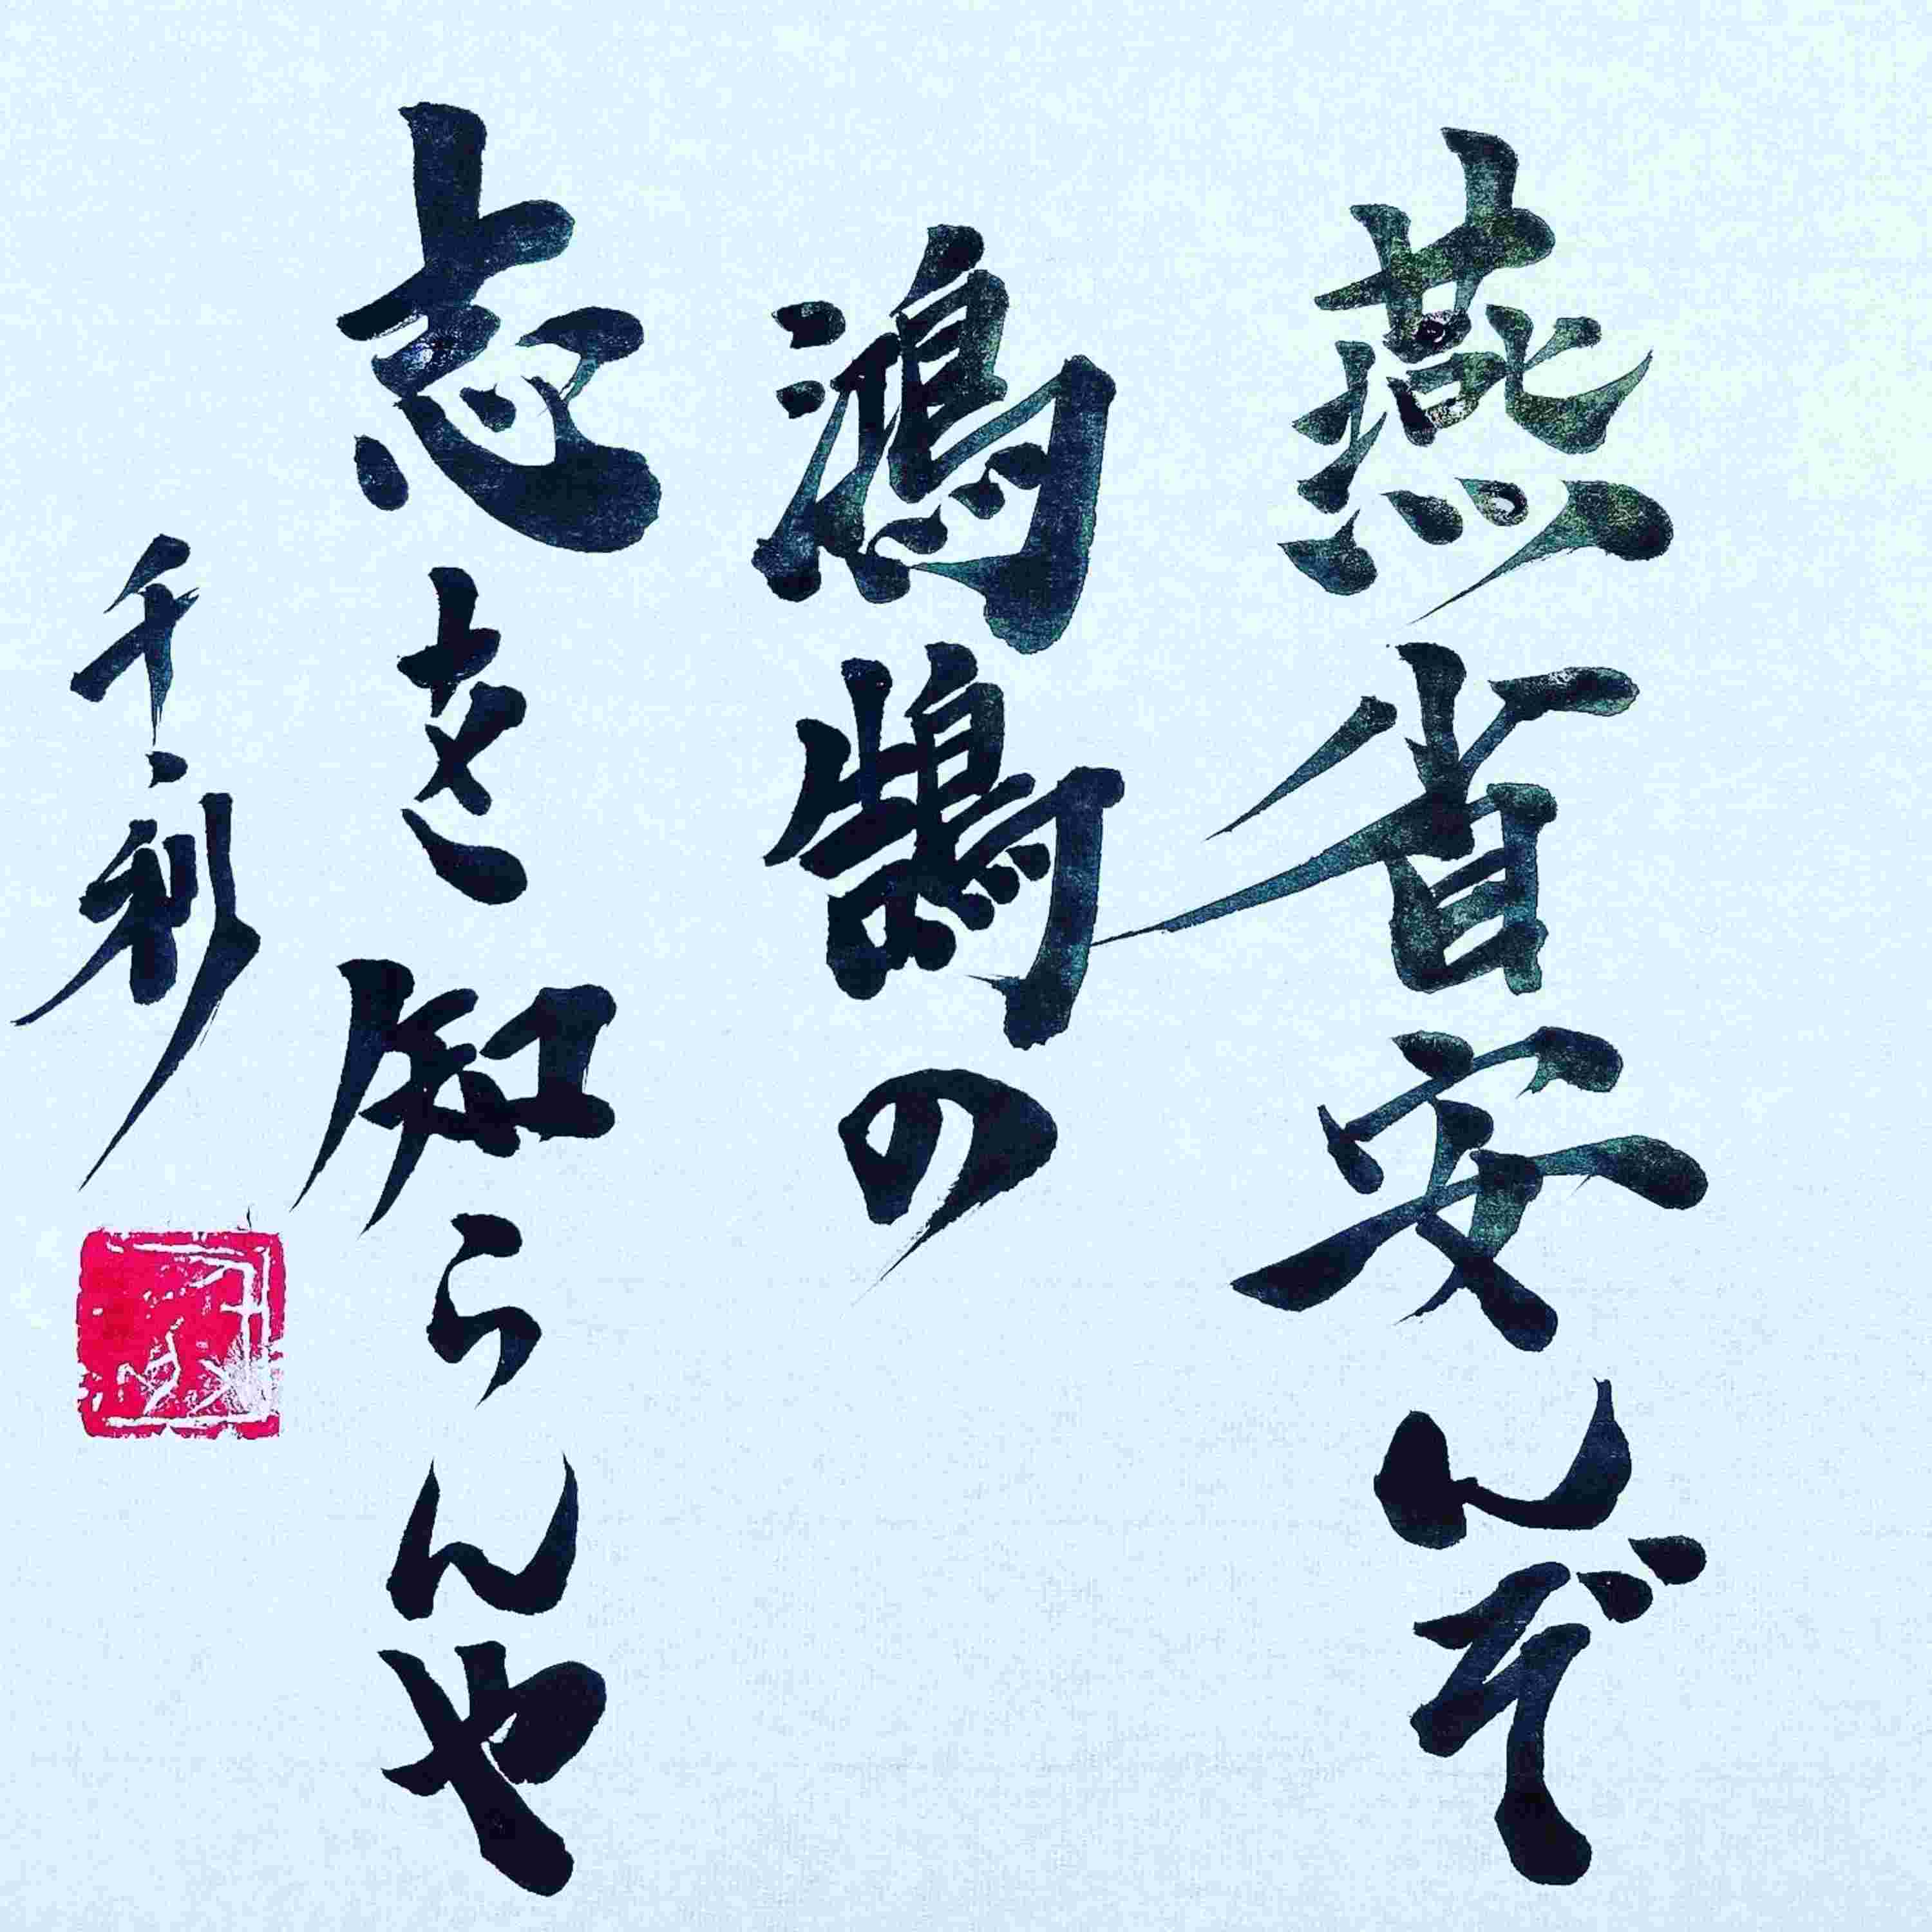 燕省安んぞ
鴻鵠の
志を知らんや
千利